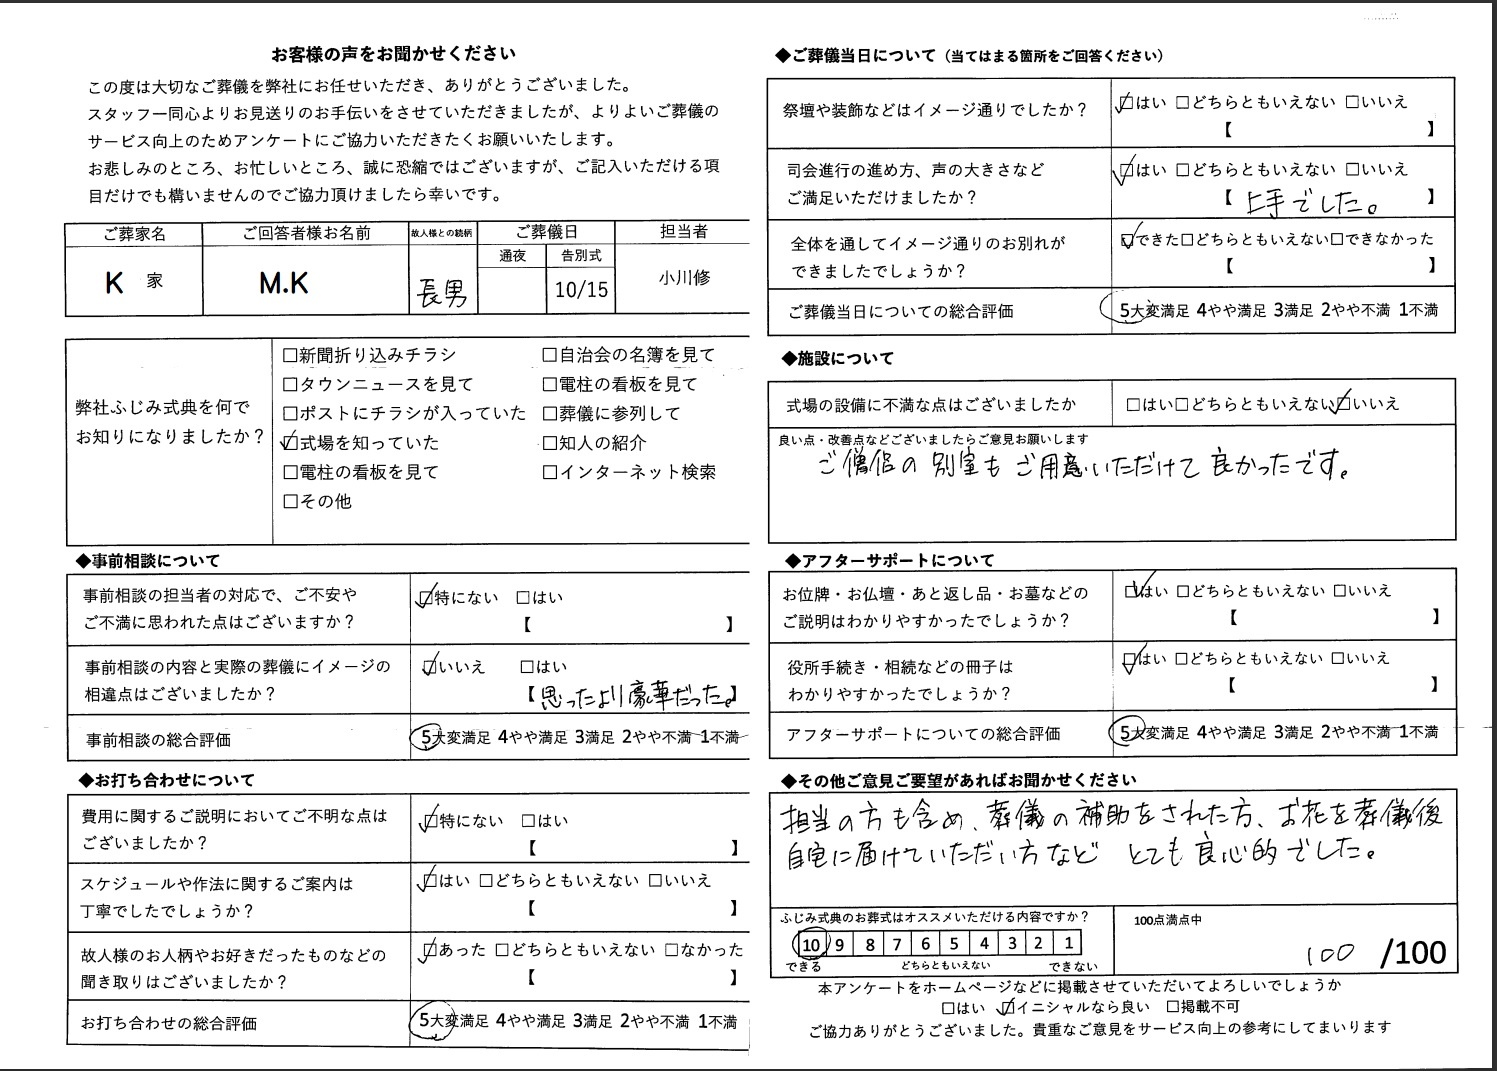 お客様の声をお聞かせください
この度は大切なご葬儀を弊社にお任せいただき、ありがとうございました。
スタッフ一同心よりお見送りのお手伝いをさせていただきましたが、よりよいご葬儀の
サービス向上のためアンケートにご協力いただきたくお願いいたします。
お悲しみのところ、お忙しいところ、誠に恐縮ではございますが、ご記入いただける項
目だけでも構いませんのでご協力頂けましたら幸いです。
ご葬家名 ご回答者様お名前 故人様との続柄 ご葬儀日 担当者
通夜 告別式
K 家 M.K 長男 10/15 小川修
弊社ふじみ式典を何で
お知りになりましたか?
□新聞折り込みチラシ □自治会の名簿を見て
□タウンニュースを見て □電柱の看板を見て
□ポストにチラシが入っていた □葬儀に参列して
☑式場を知っていた □知人の紹介
□電柱の看板を見て □インターネット検索
□その他
◆事前相談について
事前相談の担当者の対応で、ご不安や ☑特にない □はい
ご不満に思われた点はございますか? 【 】
事前相談の内容と実際の葬儀にイメージの ☑いいえ □はい
相違点はございましたか? 【思ったより豪華だった。】
事前相談の総合評価 5大変満足 4やや満足 3満足 2やや不満 1不満
◆お打ち合わせについて
費用に関するご説明においてご不明な点は ☑特にない □はい
ございましたか? 【 】
スケジュールや作法に関するご案内は ☑はい □どちらともいえない □いいえ
丁寧でしたでしょうか? 【 】
故人様のお人柄やお好きだったものなどの ☑あった □どちらともいえない □なかった
聞き取りはございましたか? 【 】
お打ち合わせの総合評価 5大変満足 4やや満足 3満足 2やや不満 1不満
◆ご葬儀当日について(当てはまる箇所をご回答ください)
祭壇や装飾などはイメージ通りでしたか? ☑はい □どちらともいえない □いいえ
【 】
司会進行の進め方、声の大きさなど ☑はい □どちらともいえない □いいえ
ご満足いただけましたか? 【 上手でした。 】
全体を通してイメージ通りのお別れが ☑できた□どちらともいえない□できなかった
できましたでしょうか? 【 】
ご葬儀当日についての総合評価 5大変満足 4やや満足 3満足 2やや不満 1不満
◆施設について
式場の設備に不満な点はございましたか □はい□どちらともいえない☑いいえ
良い点・改善点などございましたらご意見お願いします
ご僧侶の別室もご用意いただけて良かったです。
◆アフターサポートについて
お位牌・お仏壇・あと返し品・お墓などの ☑はい □どちらともいえない □いいえ
ご説明はわかりやすかったでしょうか? 【 】
役所手続き・相続などの冊子は ☑はい □どちらともいえない □いいえ
わかりやすかったでしょうか? 【 】
アフターサポートについての総合評価 5大変満足 4やや満足 3満足 2やや不満 1不満
◆その他ご意見ご要望があればお聞かせください
担当の方も含め、葬儀の補助をされた方、お花を葬儀後
自宅に届けていただい方など とても良心的でした。
ふじみ式典のお葬式はオススメいただける内容ですか? 100点満点中
10 9 8 7 6 5 4 3 2 1 100 /100
できる どちらともいえない できない
本アンケートをホームページなどに掲載させていただいてよろしいでしょうか
□はい ☑イニシャルなら良い □掲載不可
ご協力ありがとうございました。貴重なご意見をサービス向上の参考にしてまいります